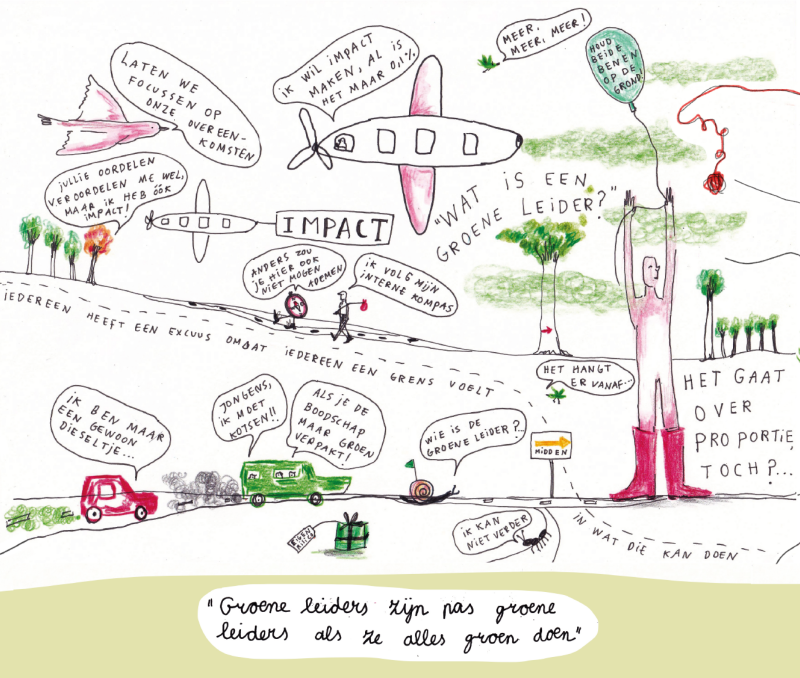 MEER,
MEER, MEER!
HOUD
BEIDE
BENEN
OP DE
GROND!
LATEN WE
FOCUSSEN OP
ONZE OVEREEN-
KOMSTEN
IK WIL IMPACT
MAKEN, AL IS
HET MAAR 0,1%
JULLIE OORDELEN
VEROORDELEN ME WEL,
MAAR IK HEB ÓÓK
IMPACT!
IMPACT
"WAT IS EEN
GROENE LEIDER?"
ANDERS ZOU
JE HIER OOK
NIET MOGEN
ADEMEN
IK VOLG MIJN
INTERNE KOMPAS
IEDEREEN HEEFT EEN EXCUUS OMDAT IEDEREEN EEN GRENS VOELT
IN WAT DIE KAN DOEN
HET HANGT
ER VANAF...
HET GAAT
OVER
PROPORTIE,
TOCH?...
IK BEN MAAR
EEN GEWOON
DIESELTJE...
JONGENS,
IK MOET
KOTSEN!!
ALS JE DE
BOODSCHAP
MAAR GROEN
VERPAKT!
WIE IS DE
GROENE LEIDER?...
MIDDEN
EIGEN
RISICO
IK KAN
NIET VERDER
"Groene leiders zijn pas groene
leiders als ze alles groen doen"